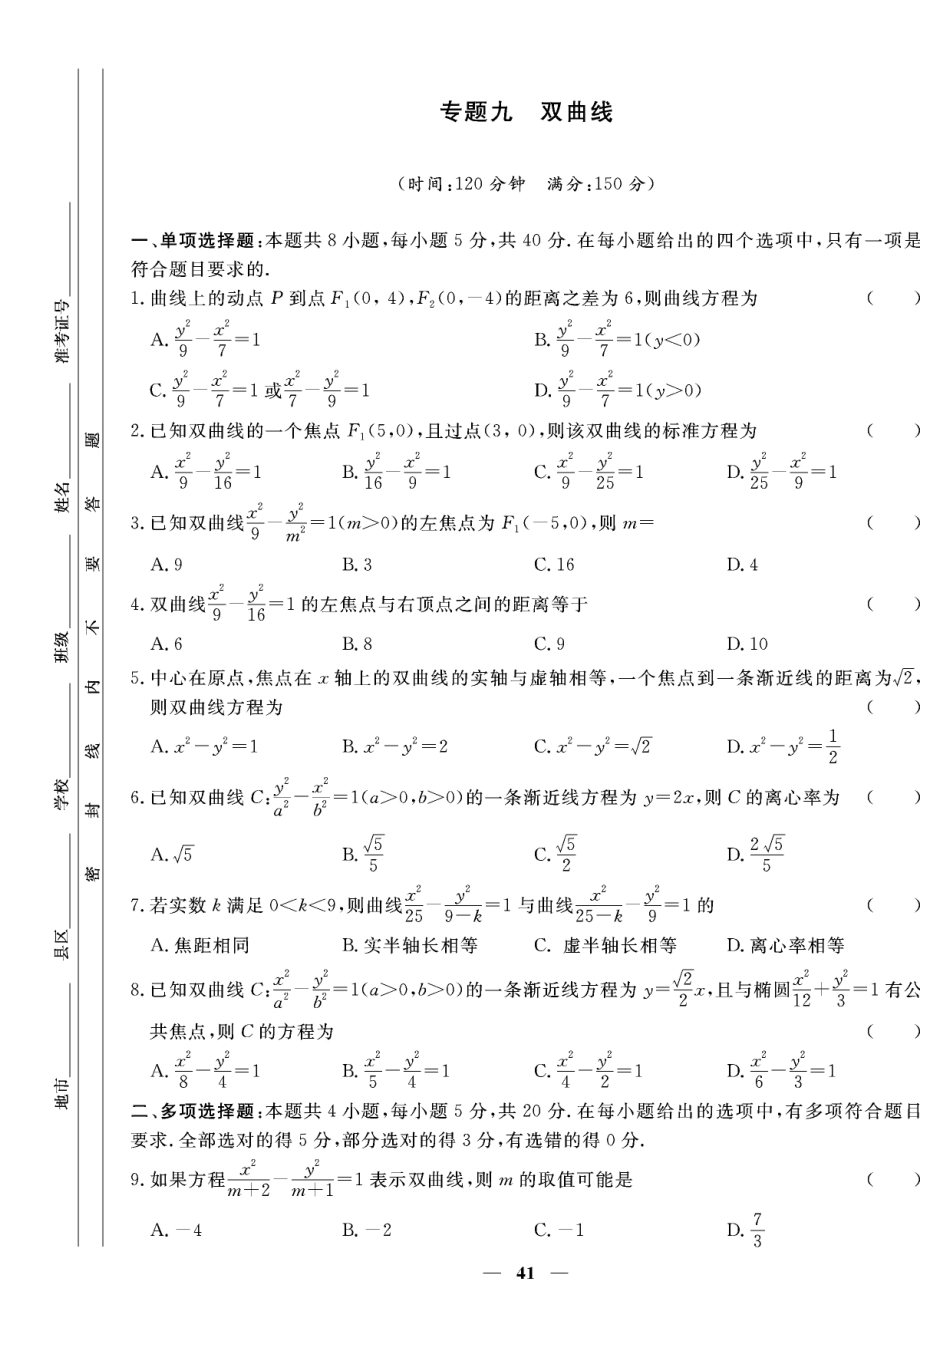 专题九 双曲线
(时间:120分钟 满分:150分)
一、单项选择题:本题共8小题,每小题5分,共40分.在每小题给出的四个选项中,只有一项是
符合题目要求的.
1.曲线上的动点P到点F₁(0,4),F₂(0,-4)的距离之差为6,则曲线方程为 ( )
A. y²/9-x²/7=1 B. y²/9-x²/7=1(y<0)
C. y²/9-x²/7=1或x²/7-y²/9=1 D. y²/9-x²/7=1(y>0)
2.已知双曲线的一个焦点F₁(5,0),且过点(3,0),则该双曲线的标准方程为 ( )
A. x²/9-y²/16=1 B. y²/16-x²/9=1 C. x²/9-y²/25=1 D. y²/25-x²/9=1
3.已知双曲线x²/9-y²/m²=1(m>0)的左焦点为F₁(-5,0),则m= ( )
A. 9 B. 3 C. 16 D. 4
4.双曲线x²/9-y²/16=1的左焦点与右顶点之间的距离等于 ( )
A. 6 B. 8 C. 9 D. 10
5.中心在原点,焦点在x轴上的双曲线的实轴与虚轴相等,一个焦点到一条渐近线的距离为√2,
则双曲线方程为 ( )
A. x²-y²=1 B. x²-y²=2 C. x²-y²=√2 D. x²-y²=1/2
6.已知双曲线C:y²/a²-x²/b²=1(a>0,b>0)的一条渐近线方程为y=2x,则C的离心率为 ( )
A. √5 B. √5/5 C. √5/2 D. 2√5/5
7.若实数k满足0<k<9,则曲线x²/25-y²/(9-k)=1与曲线x²/(25-k)-y²/9=1的 ( )
A. 焦距相同 B. 实半轴长相等 C. 虚半轴长相等 D. 离心率相等
8.已知双曲线C:x²/a²-y²/b²=1(a>0,b>0)的一条渐近线方程为y=√2/2x,且与椭圆x²/12+y²/3=1有公
共焦点,则C的方程为 ( )
A. x²/8-y²/4=1 B. x²/5-y²/4=1 C. x²/4-y²/2=1 D. x²/6-y²/3=1
二、多项选择题:本题共4小题,每小题5分,共20分.在每小题给出的选项中,有多项符合题目
要求.全部选对的得5分,部分选对的得3分,有选错的得0分.
9.如果方程x²/(m+2)-y²/(m+1)=1表示双曲线,则m的取值可能是 ( )
A. -4 B. -2 C. -1 D. 7/3
— 41 —
地市 县区 学校 班级 姓名 准考证号
密 封 线 内 不 要 答 题